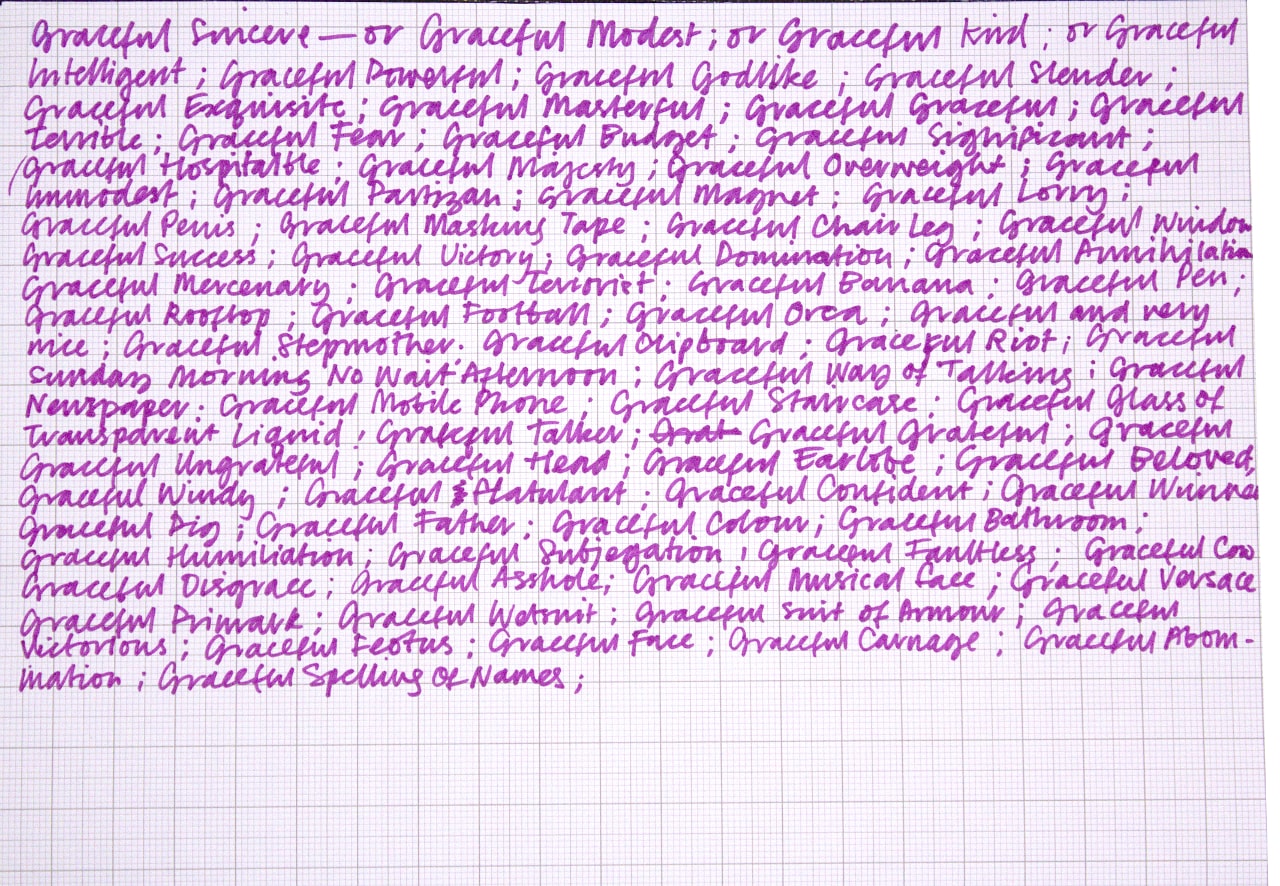 Graceful Sincere — or Graceful Modest ; or Graceful Kind ; or Graceful
Intelligent ; Graceful Powerful ; Graceful Godlike ; Graceful Slender ;
Graceful Exquisite ; Graceful Masterful ; Graceful Graceful ; Graceful
Terrible ; Graceful Fear ; Graceful Budget ; Graceful Significant ;
Graceful Hospitable ; Graceful Majesty ; Graceful Overweight ; Graceful
Immodest ; Graceful Partizan ; Graceful Magnet ; Graceful Lorry ;
Graceful Penis ; Graceful Masking Tape ; Graceful Chair Leg ; Graceful Window
Graceful Success ; Graceful Victory ; Graceful Domination ; Graceful Annihilation
Graceful Mercenary ; Graceful Terrorist ; Graceful Banana ; Graceful Pen ;
Graceful Rooftop ; Graceful Football ; Graceful Orca ; Graceful and very
nice ; Graceful Stepmother ; Graceful Clipboard ; Graceful Riot ; Graceful
Sunday Morning No Wait Afternoon ; Graceful Way of Talking ; Graceful
Newspaper ; Graceful Mobile Phone ; Graceful Staircase ; Graceful Glass of
Transparent Liquid ; Grateful Talker ; Graceful Grateful ; Graceful
Graceful Ungrateful ; Graceful Head ; Graceful Earlobe ; Graceful Beloved ;
Graceful Windy ; Graceful Flatulant ; Graceful Confident ; Graceful Winner
Graceful Pig ; Graceful Father ; Graceful Colour ; Graceful Bathroom ;
Graceful Humiliation ; Graceful Subjegation ; Graceful Faultless ; Graceful Cow
Graceful Disgrace ; Graceful Asshole ; Graceful Musical face ; Graceful Versace
Graceful Primark ; Graceful Wetsuit ; Graceful Suit of Armour ; Graceful
Victorious ; Graceful Feotus ; Graceful Face ; Graceful Carnage ; Graceful Abom-
ination ; Graceful Spelling Of Names ;